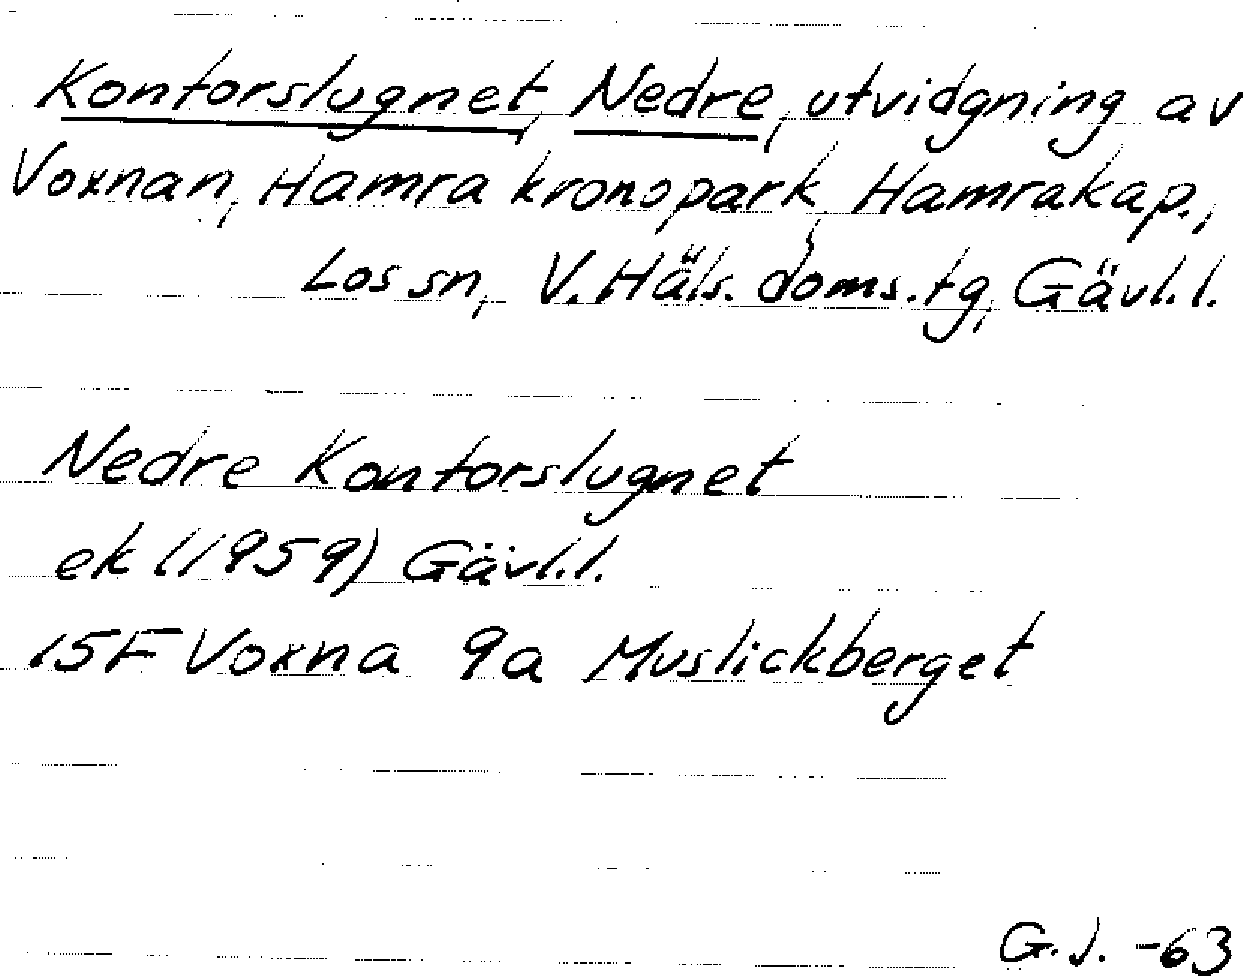 Kontorslugnet, Nedre, utvidgning av
Voxnan, Hamra kronopark, Hamra kap.,
Los sn, V. Häls. doms. tg, Gävl. l.
Nedre Kontorslugnet
ek (1959) Gävl. l.
15F Voxna 9a Muslickberget
G.J. -63